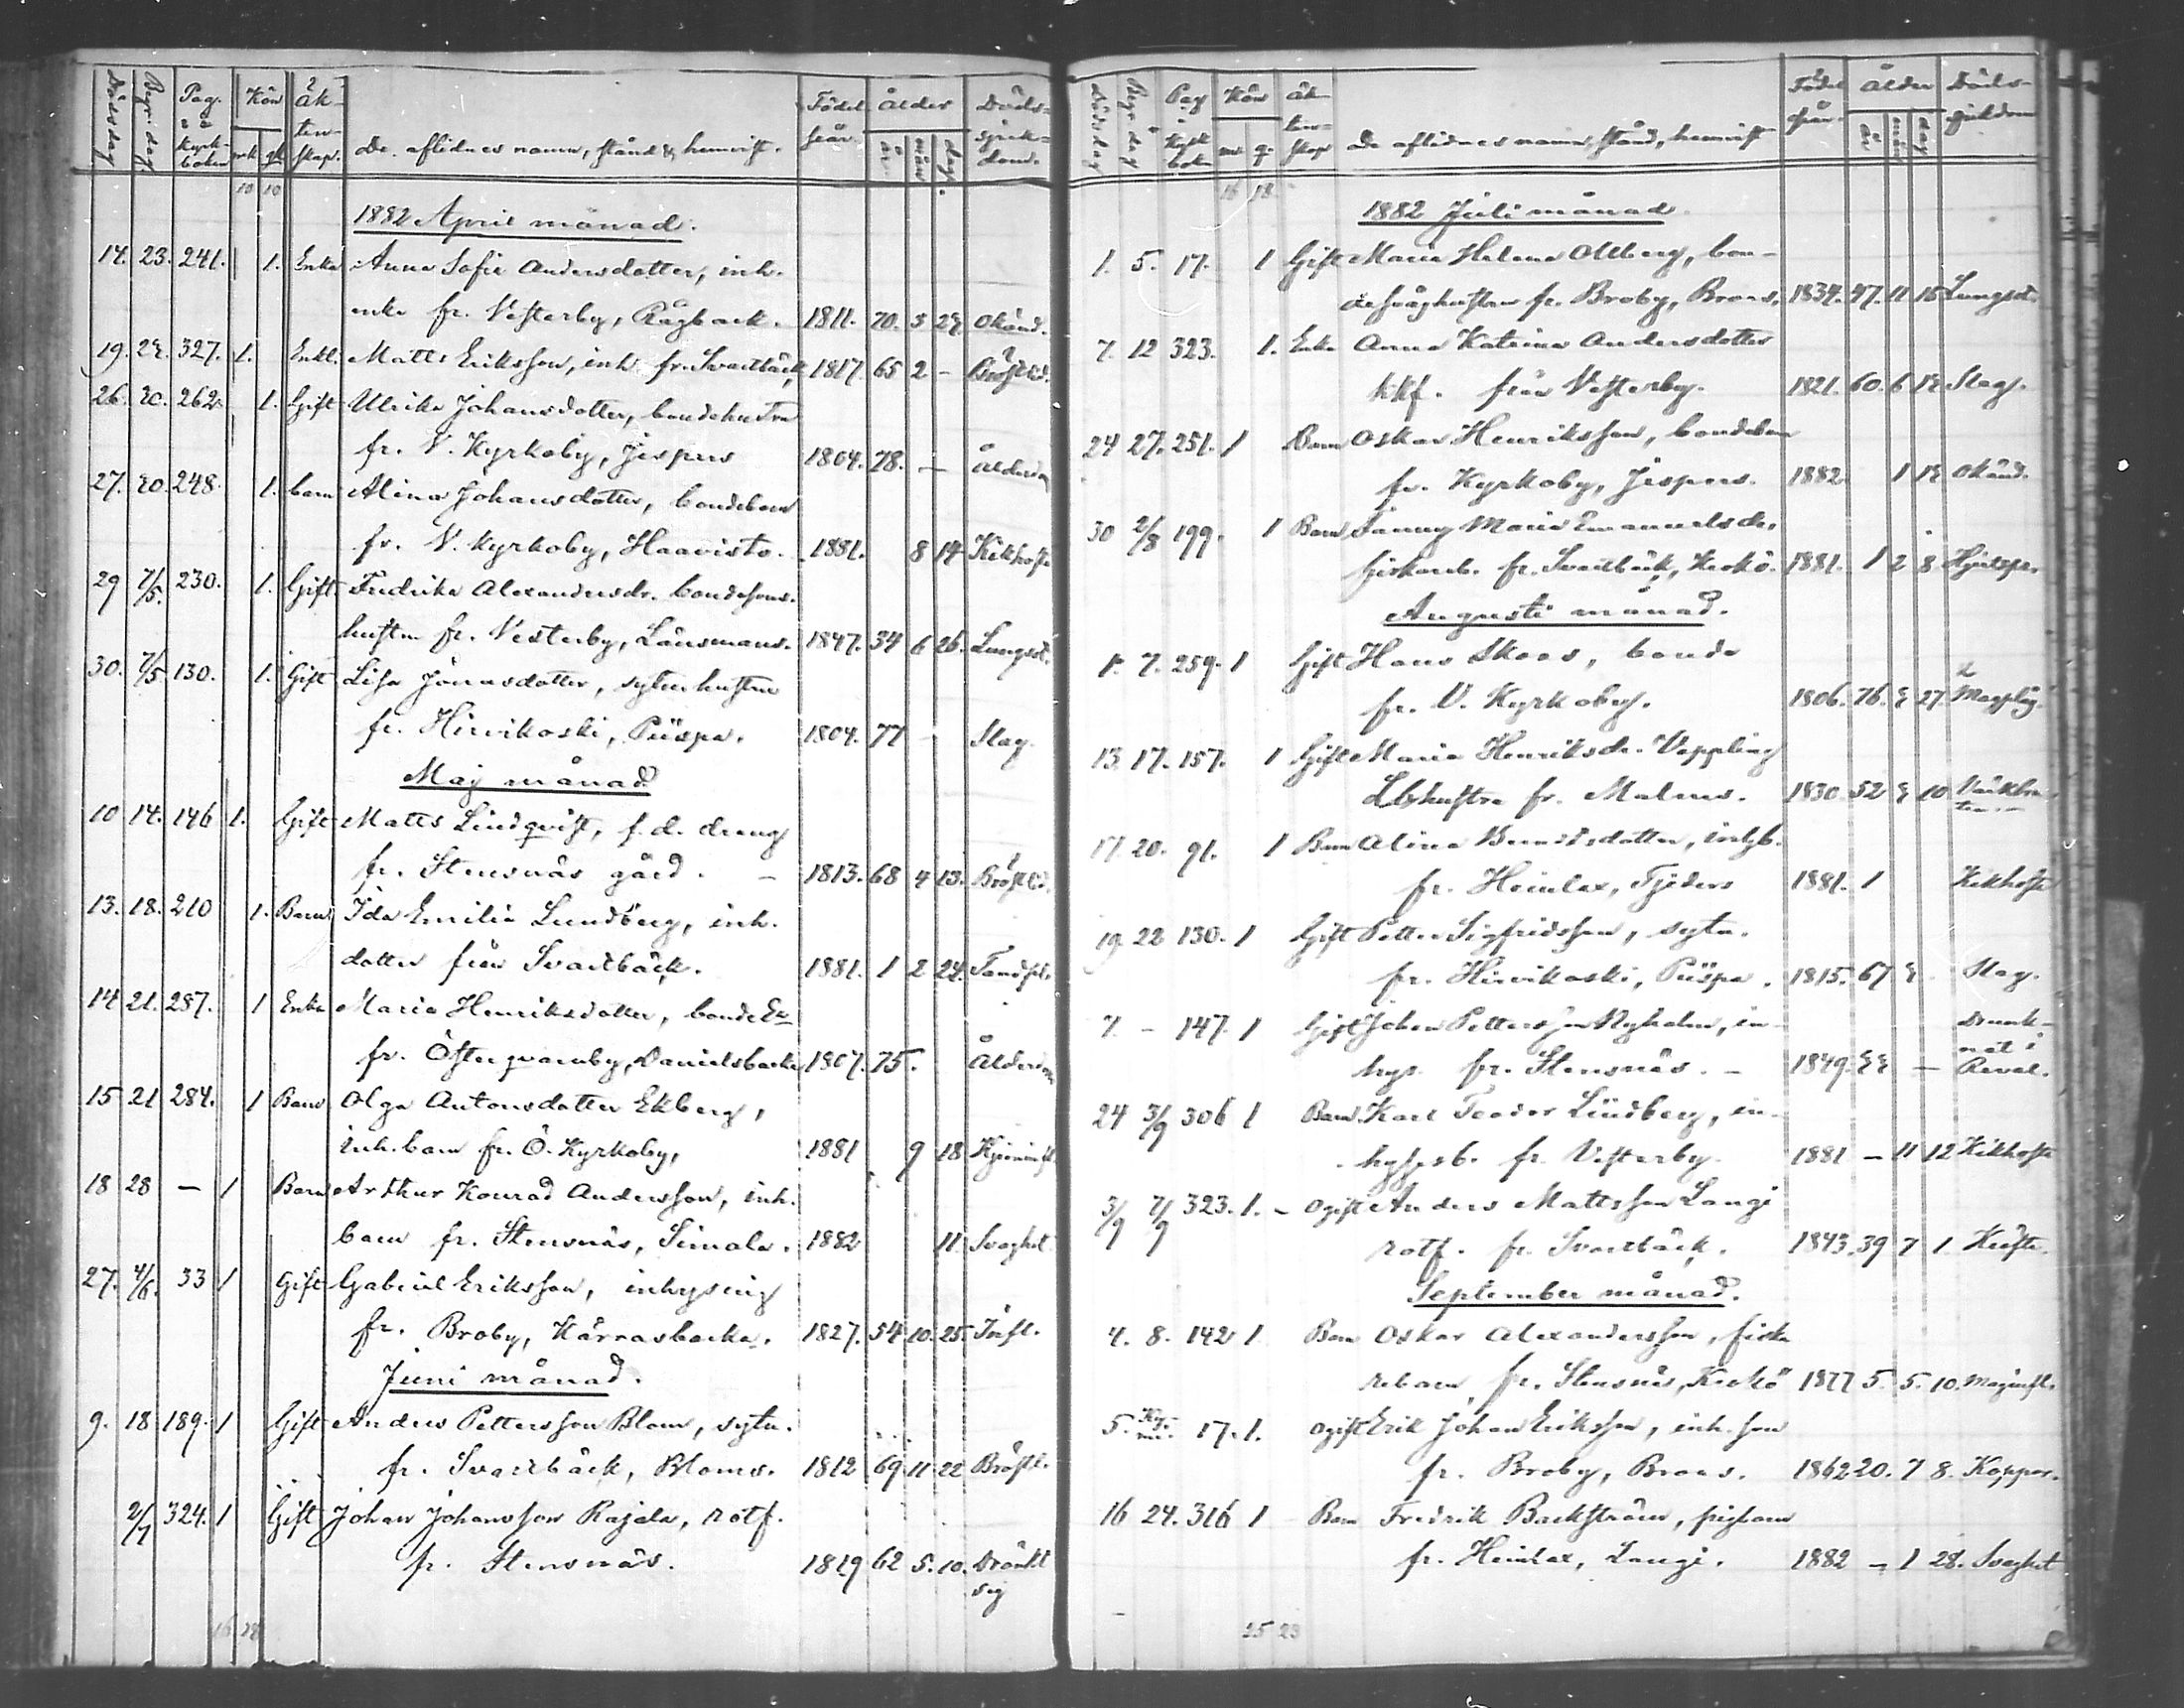 Dödsdag Begr. dag. Pag. i kyrkboken Kön mk qk Äktenskap. De aflidnes namn, stånd & hemvist. Födelseår. Ålder år mån dag. Dödssjukdom.
10 10
1882 April månad.
14. 23. 241. 1. Enka Anna Sofia Andersdotter, inh.
enka fr. Vesterby, Rågback. 1811. 70. 5 23 Okänd.
19. 23. 327. 1. Enkl. Matts Eriksson, inh. fr. Svartbäck, 1817. 65 2 - Bröstsd.
26. 30. 262 1. Gift Ulrika Johansdotter, bondehustru
fr. V. Kyrkoby, Jispers 1804. 78. - Ålderdom
27. 30. 248. 1. barn Alina Johansdotter, bondebarn
fr. V. Kyrkoby, Haavisto. 1881. 8 14 Kikhosta
29 7/5. 230. 1. Gift Fredrika Alexandersdr. bondesons-
hustru fr. Vesterby, Länsmans. 1847. 34 6 26. Lungsot.
30. 7/5. 130. 1. Gift Lisa Jönasdotter, sytn.hustru
fr. Hirvikoski, Piispa. 1804. 77 - Slag.
Maj månad
10 14. 146 1. Gift Matts Lindqvist, f.d. dreng
fr. Stensnäs gård. - 1813. 68 4 13. Bröstsd.
13. 18. 210 1. Barn Ida Emilia Lundberg, inh.
dotter från Svartbäck. 1881. 1 2 24. Tandspr.
14 21. 287. 1 Enka Maria Henriksdotter, bonde Ek
fr. Östergvarnby, Danielsbacka 1807. 75. Ålderdom
15 21 284. 1 Barn Olga Antonsdotter Ekberg,
inh. barn fr. Ö. Kyrkoby, 1881 9 18 Hjerninfl.
18 28 - 1 Barn Arthur Konrad Andersson, inh.
barn fr. Stensnäs, Simola. 1882 11. Svaghet
27. 4/6. 33 1 Gift Gabriel Eriksson, inhysing
fr. Broby, Kärrasbacka. 1827. 54 10. 25. Infl.
Juni månad.
9. 18 189. 1 Gift Anders Pettersson Blom, sytn.
fr. Svartbäck, Bloms. 1812 69 11 22 Bröstl.
2/7 324. 1 Gift Johan Johansson Rajala, rotf.
fr. Stensnäs. 1819 62 5. 10. Dränkt
sig
16 28
Dödsdag Begr. dag Pag i kyrkbok Kön m. q. Äktenskap De aflidnes namn, stånd, hemvist Födelseår. Ålder år mån dag Dödssjukdom
16 18.
1882 Juli månad.
1. 5. 17. 1 Gift Maria Helena Ahlberg, bon-
desvåghustru fr. Broby, Broas, 1834. 47. 11 15 Lungsot.
7. 12 323. 1. Enka Anna Katrina Andersdotter
kkf. från Vesterby. 1821. 60. 6 13 Slag.
24 27. 251. 1 Barn Oskar Henriksson, bondebarn
fr. Kyrkoby, Jispers. 1882. 1 13 Okänd.
30 2/8 199. 1 Barn Fanny Maria Emanuelsdr.
fiskareb. fr. Svartbäck, Keckö. 1881. 1 2 8 Hjertspr.
Augusti månad.
1. 7. 259. 1 Gift Hans Skoas, bonde
fr. V. Kyrkoby. 1806. 76. 3 27.
13. 17. 157. 1 Gift Maria Henriksdr. Veppling
Lbshustru fr. Malms. 1830. 52 3 10.
17. 20. 91. 1 Barn Alina Berndtsdotter, inhyb.
fr. Heinlax, Tjeders 1881. 1 Kikhosta
19. 22 130. 1 Gift Petter Sigfridsson, sytn.
fr. Hirvikoski, Piispa. 1815. 67 3 Slag.
7. - 147. 1 Gift Johan Pettersson Nyholm, in-
hys. fr. Stensnäs. - 1849. 33 - Drunk-
nat i
Reval.
24 3/9 306 1 Barn Karl Teodor Lindberg, in-
hysesb. fr. Vesterby. 1881 - 11 12 Kikhosta
3/9 7/9 323. 1. - Ogift Anders Mattsson Langi
rotf. fr. Svartbäck. 1843. 39 7 1. Kräfta.
September månad.
4. 8. 142 1. Barn Oskar Alexandersson, fiska
rebarn fr. Stensnäs, Keckö 1877 5. 5. 10. Maginfl.
5. 17. 1. Ogift Erik Johan Eriksson, inh. son
fr. Broby, Broas. 1862 20. 7 8. Koppor.
16 24. 316 1 Barn Fredrik Backström, pigbarn
fr. Heinlax, Langi. 1882 - 1 28. Svaghet
25 23